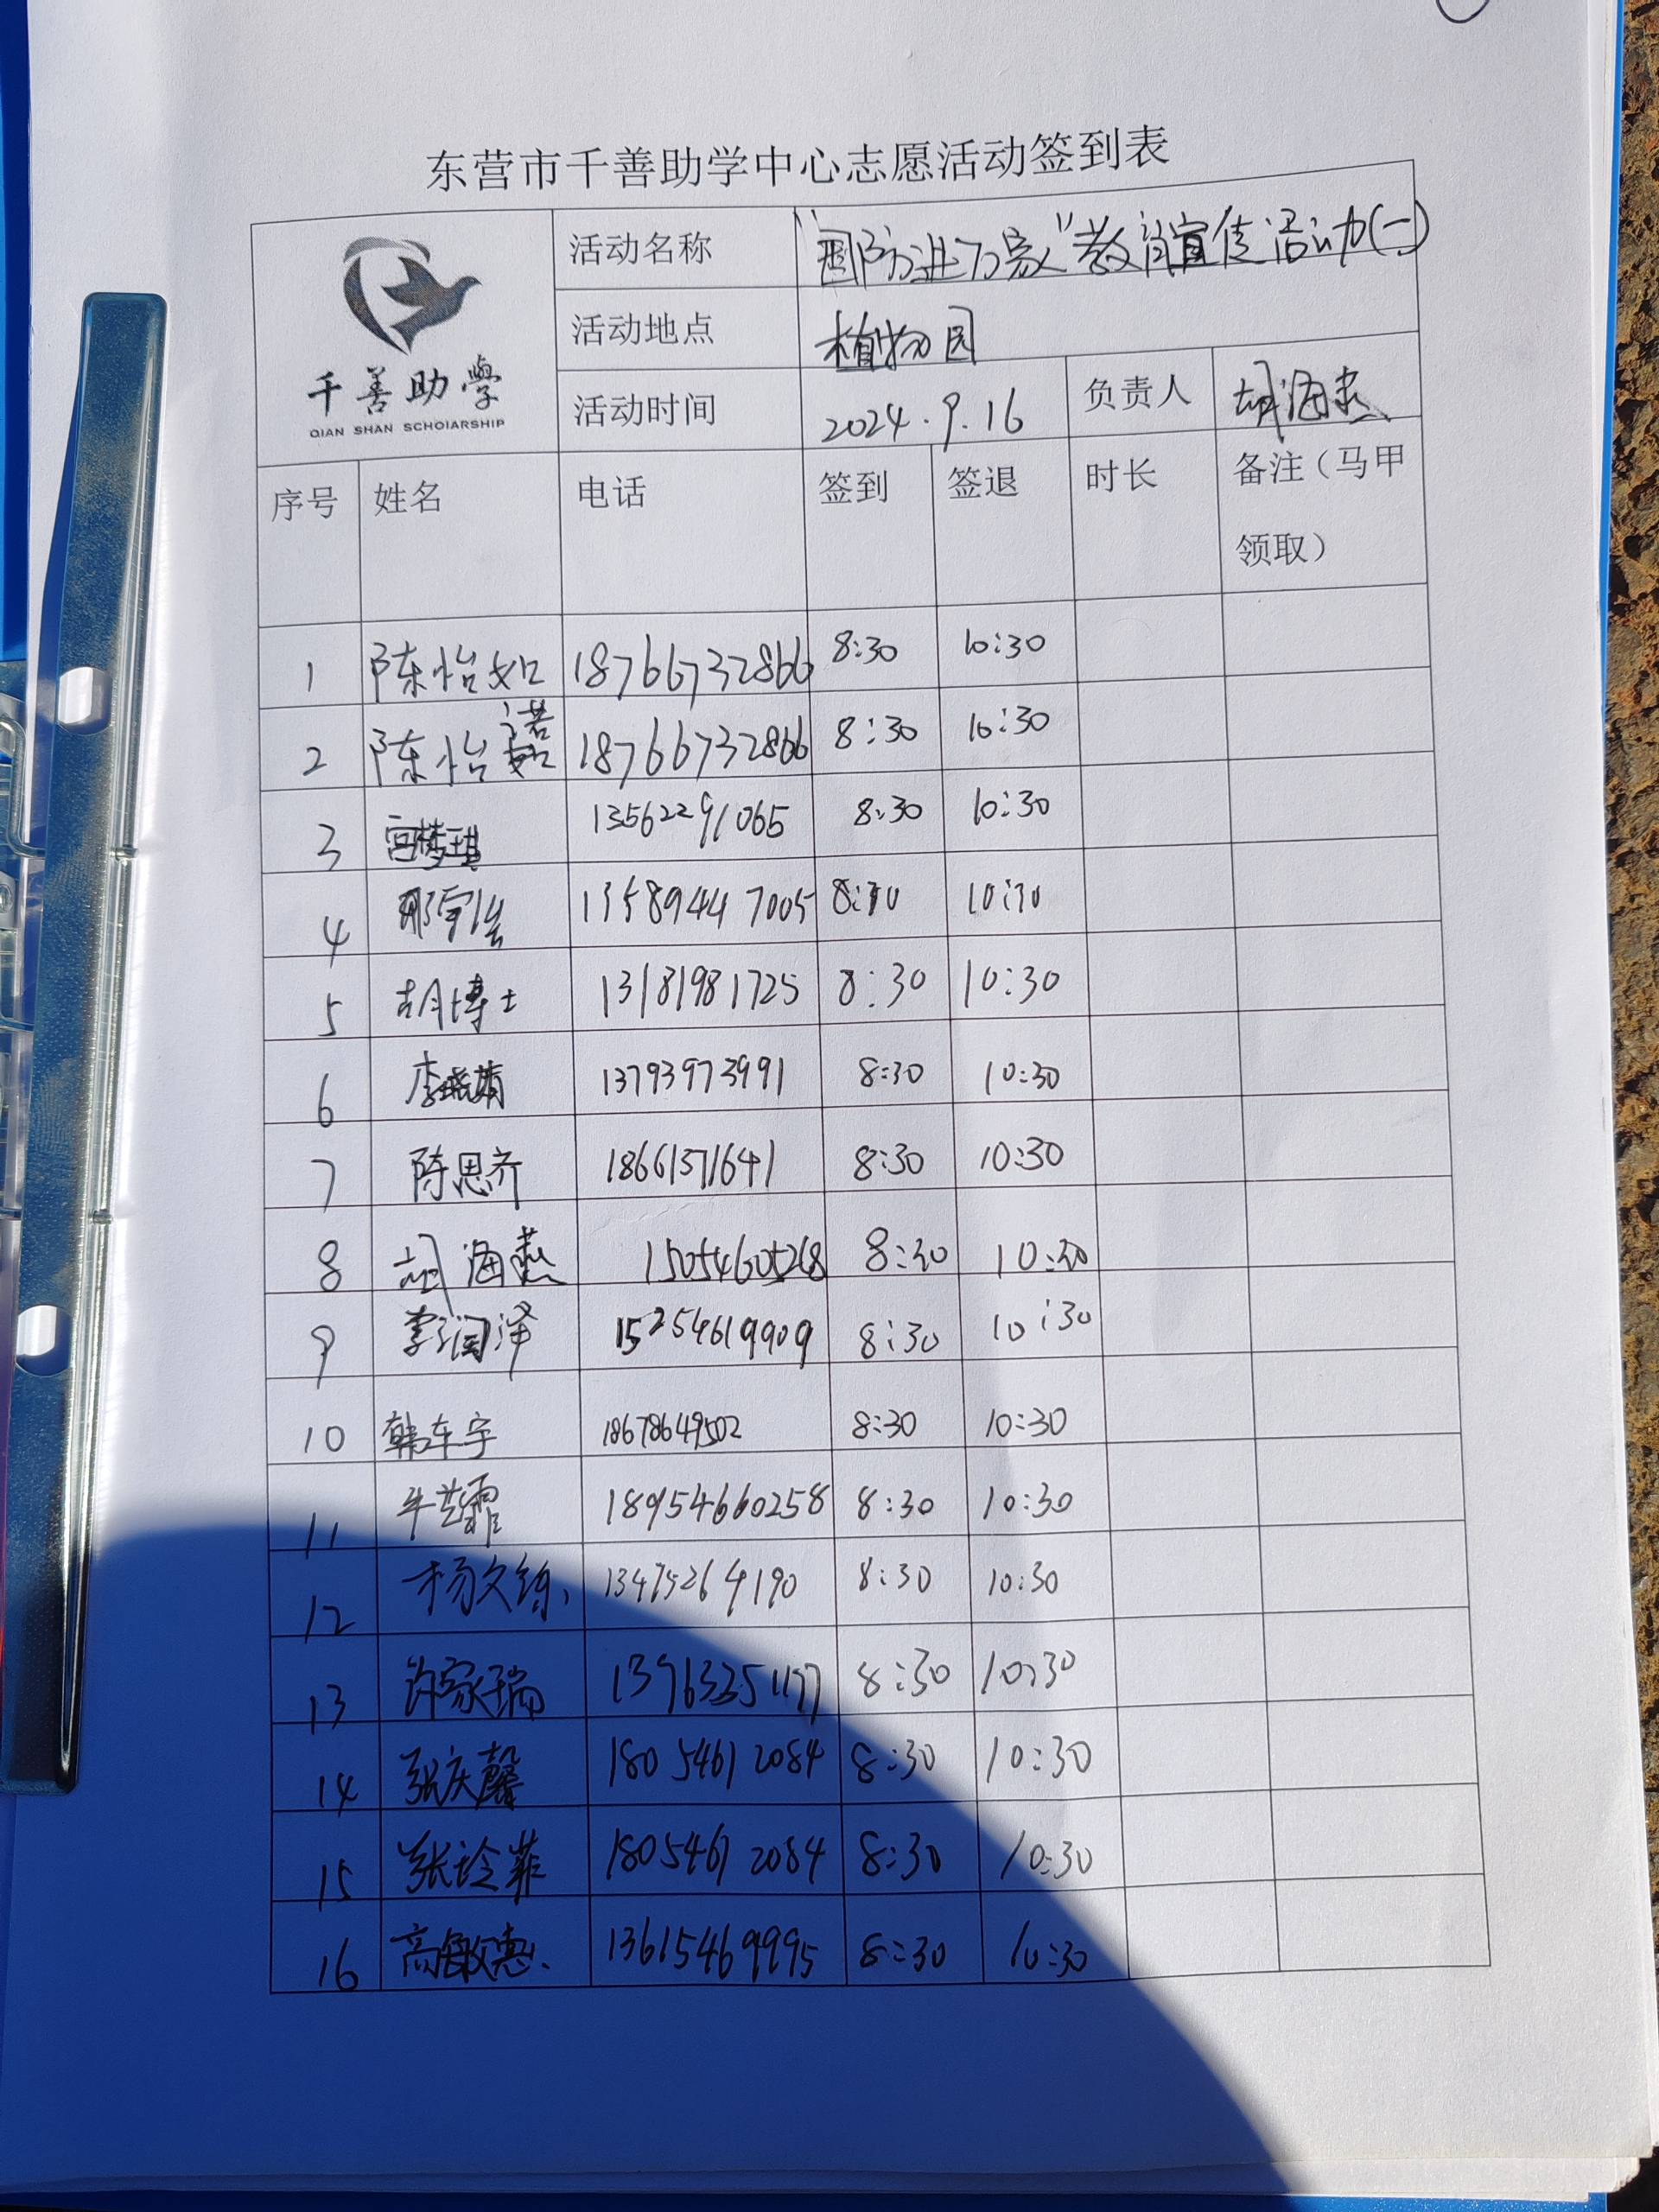 东营市千善助学中心志愿活动签到表
千善助學
QIAN SHAN SCHOlARSHIP
活动名称 "国防进万家"教育宣传活动(一)
活动地点 植物园
活动时间 2024.9.16 负责人 胡海燕
序号 姓名 电话 签到 签退 时长 备注（马甲
领取）
1 陈怡如 18766732866 8:30 10:30
2 陈怡诺 18766732866 8:30 10:30
3 宫梦琪 13562291065 8:30 10:30
4 13589447005 8:30 10:30
5 胡博士 13181981725 8:30 10:30
6 李晓婧 13793973991 8:30 10:30
7 陈思齐 18661571641 8:30 10:30
8 胡海燕 15054605268 8:30 10:30
9 李润泽 15254619909 8:30 10:30
10 韩车宇 18678649502 8:30 10:30
11 牛芸霏 18954660258 8:30 10:30
12 杨文 13475264190 8:30 10:30
13 许家瑞 8:30 10:30
14 张庆馨 18054612084 8:30 10:30
15 张玲菲 18054612084 8:30 10:30
16 高敏惠 13615469995 8:30 10:30